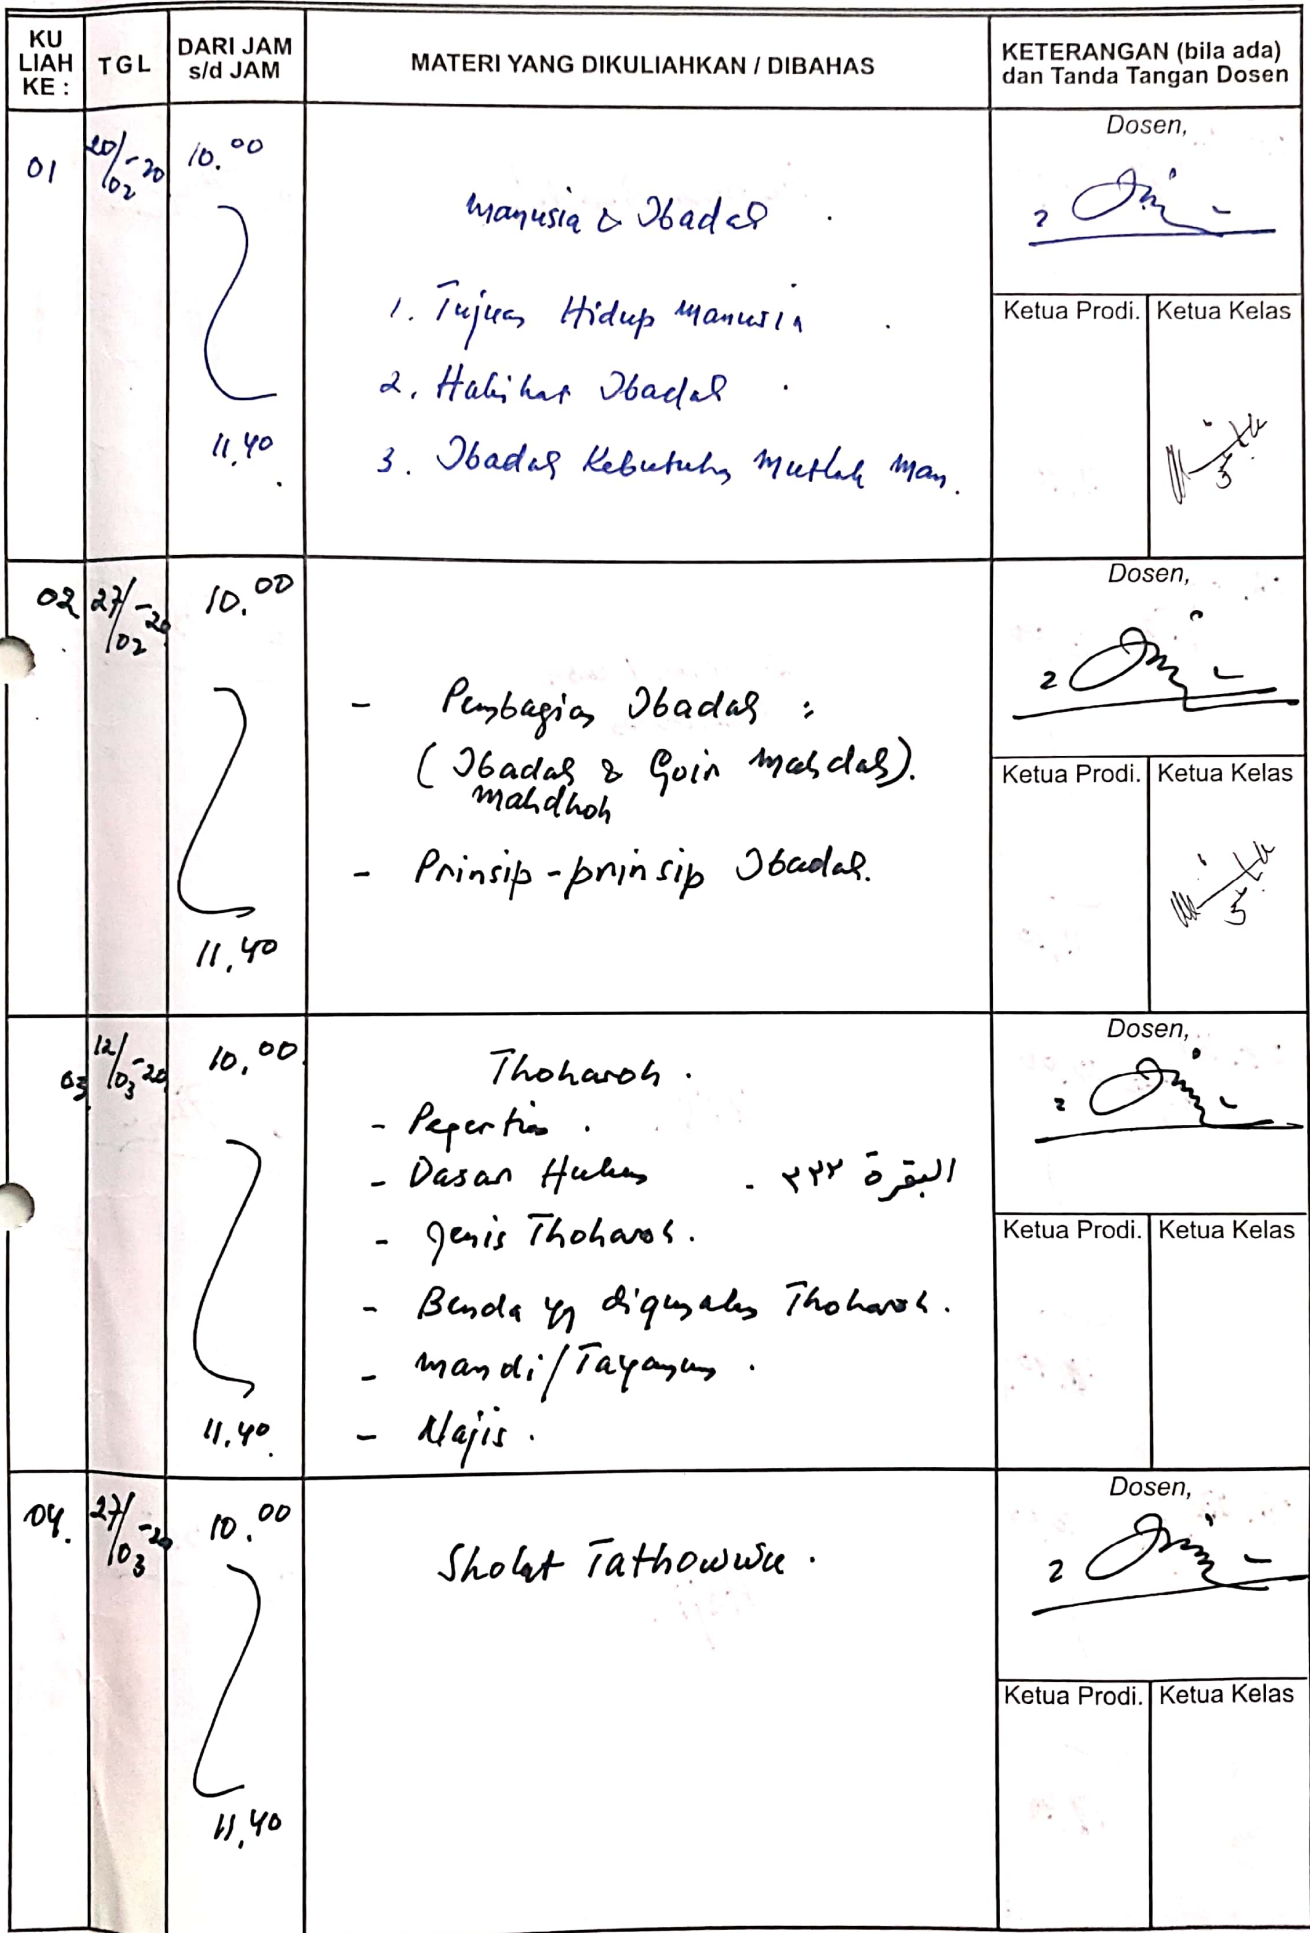 KU LIAH KE :
TGL
DARI JAM s/d JAM
MATERI YANG DIKULIAHKAN / DIBAHAS
KETERANGAN (bila ada) dan Tanda Tangan Dosen
01
20/02-20
10.00
11.40
Manusia & Ibadah
1. Tujuan Hidup Manusia
2. Hakikat Ibadah
3. Ibadah Kebutuhan Mutlak Man.
Dosen,
Ketua Prodi.
Ketua Kelas
02
27/02-20
10.00
11.40
- Pembagian Ibadah :
( Ibadah & Goir Mahdah).
Mahdhoh
- Prinsip-prinsip Ibadah.
Dosen,
Ketua Prodi.
Ketua Kelas
03
12/03-20
10.00
11.40
Thoharoh .
- Pegertian .
- Dasar Hukum - البقرة ٢٢٢
- Jenis Thoharoh.
- Benda yg digunakan Thoharoh.
- Mandi/Tayamum .
- Najis .
Dosen,
Ketua Prodi.
Ketua Kelas
04.
27/03-20
10.00
11.40
Sholat Tathowwu .
Dosen,
Ketua Prodi.
Ketua Kelas